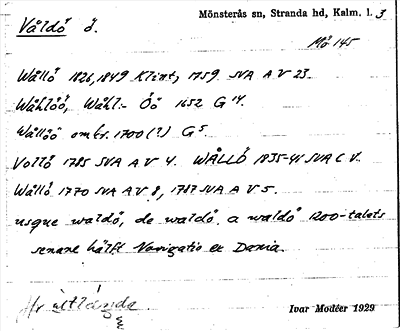 Våldö ö.
Mönsterås sn, Stranda hd, Kalm. l. 3
Mö 145
Wållö 1826, 1849 Klint, 1759 SVA A V 23.
Wåhlöö, Wåhl- Öö 1652 G 14.
Wållöö omkr. 1700 (?) G 5.
Vollö 1785 SVA A V 4. WÅLLÖ 1835-41 SVA C V.
Wållö 1770 SVA A V 8, 1787 SVA A V 5.
usque waldö, de waldö a waldö 1200-talets
senare hälft Navigatio ex Dania.
Hr utlända.
Ivar Modéer 1929